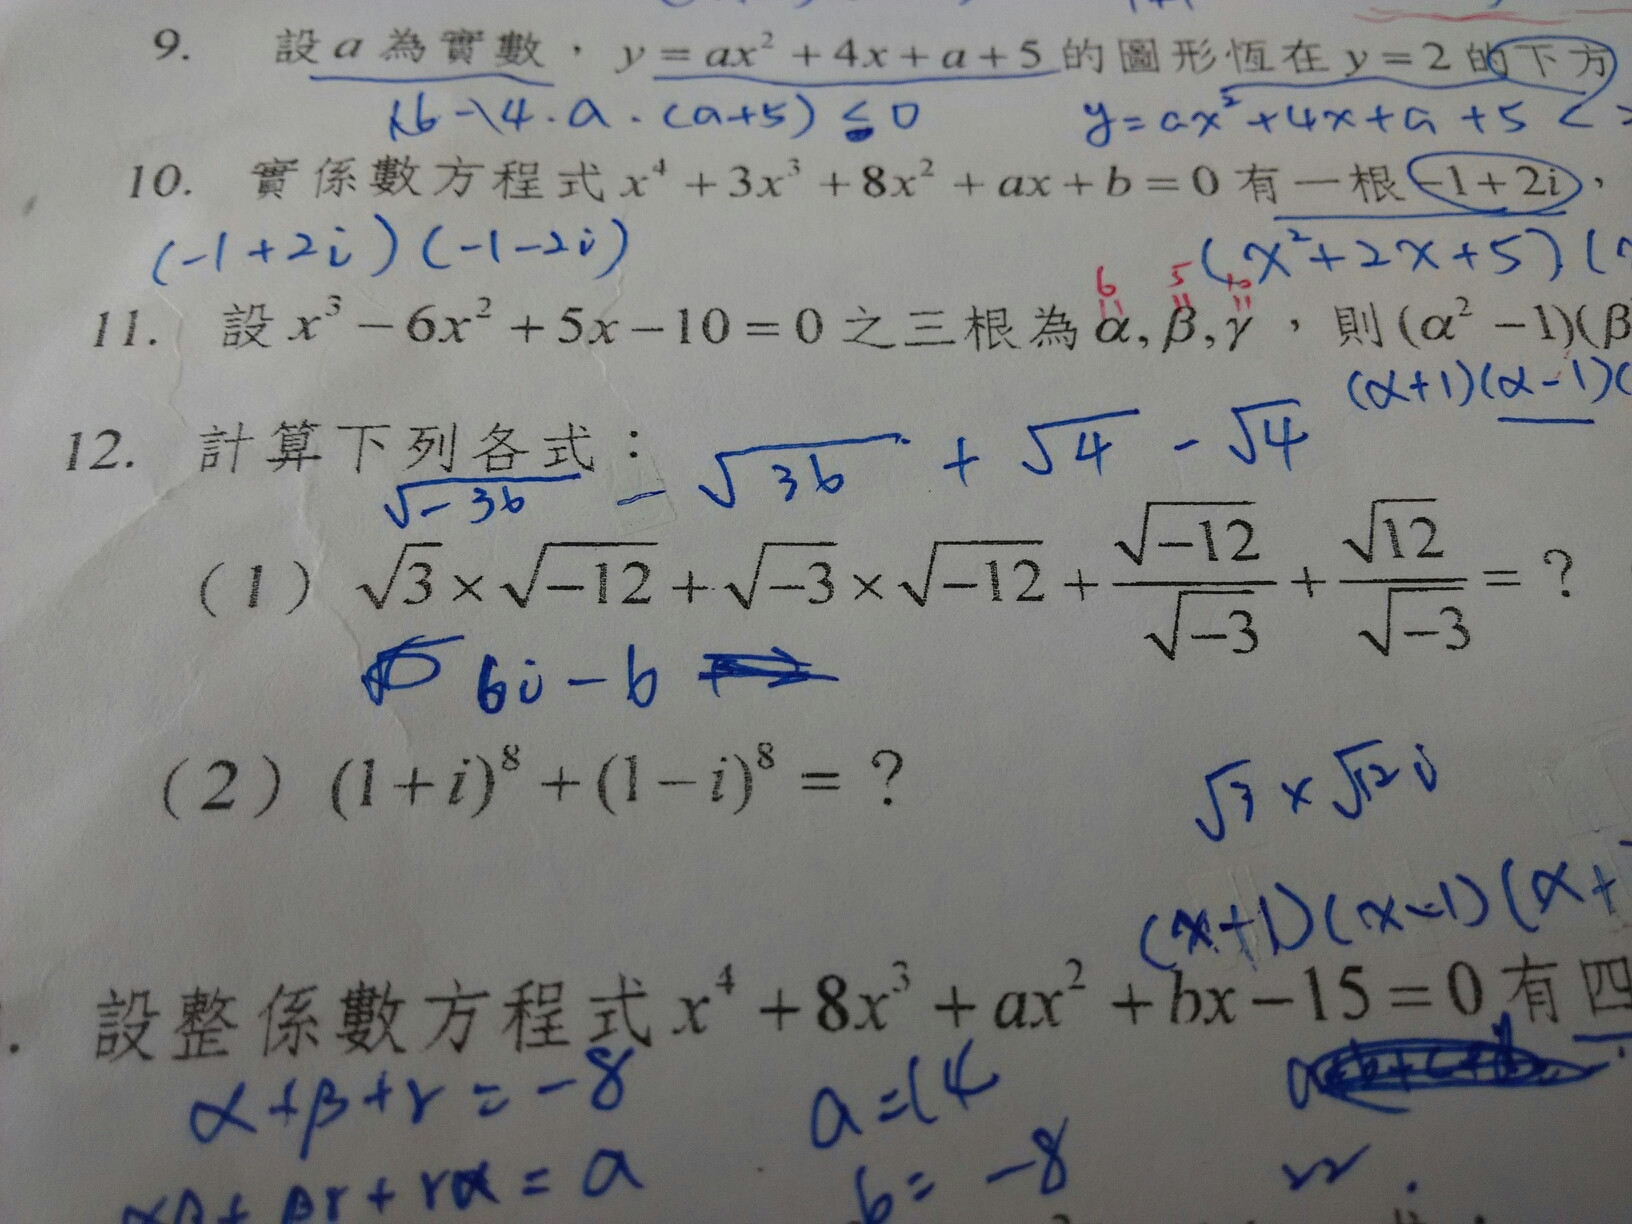 9. 設a為實數,y=ax²+4x+a+5的圖形恆在y=2的下方
16-14·a·(a+5)≤0 y=ax²+4x+a+5<
10. 實係數方程式x⁴+3x³+8x²+ax+b=0有一根-1+2i,
(-1+2i)(-1-2i) (x²+2x+5)(
6 5 10
11. 設x³-6x²+5x-10=0之三根為α,β,γ,則(α²-1)(β
(α+1)(α-1)(
12. 計算下列各式:
√-36 - √36 + √4 - √4
(1) √3×√-12+√-3×√-12+√-12/√-3+√12/√-3=?
6i-6
(2) (1+i)⁸+(1-i)⁸=?
√3×√12i
(x+1)(x-1)(x+
. 設整係數方程式x⁴+8x³+ax²+bx-15=0有四
α+β+γ=-8 a=14
αβ+βγ+γα=a b=-8